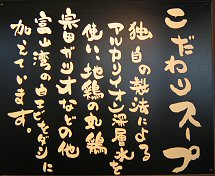 こだわりスープ
独自の製法による
アルカリイオン深層水を
使い、地鶏の丸鶏
宗田ガツオなどの他
富山湾の白エビをダシに
加えています。